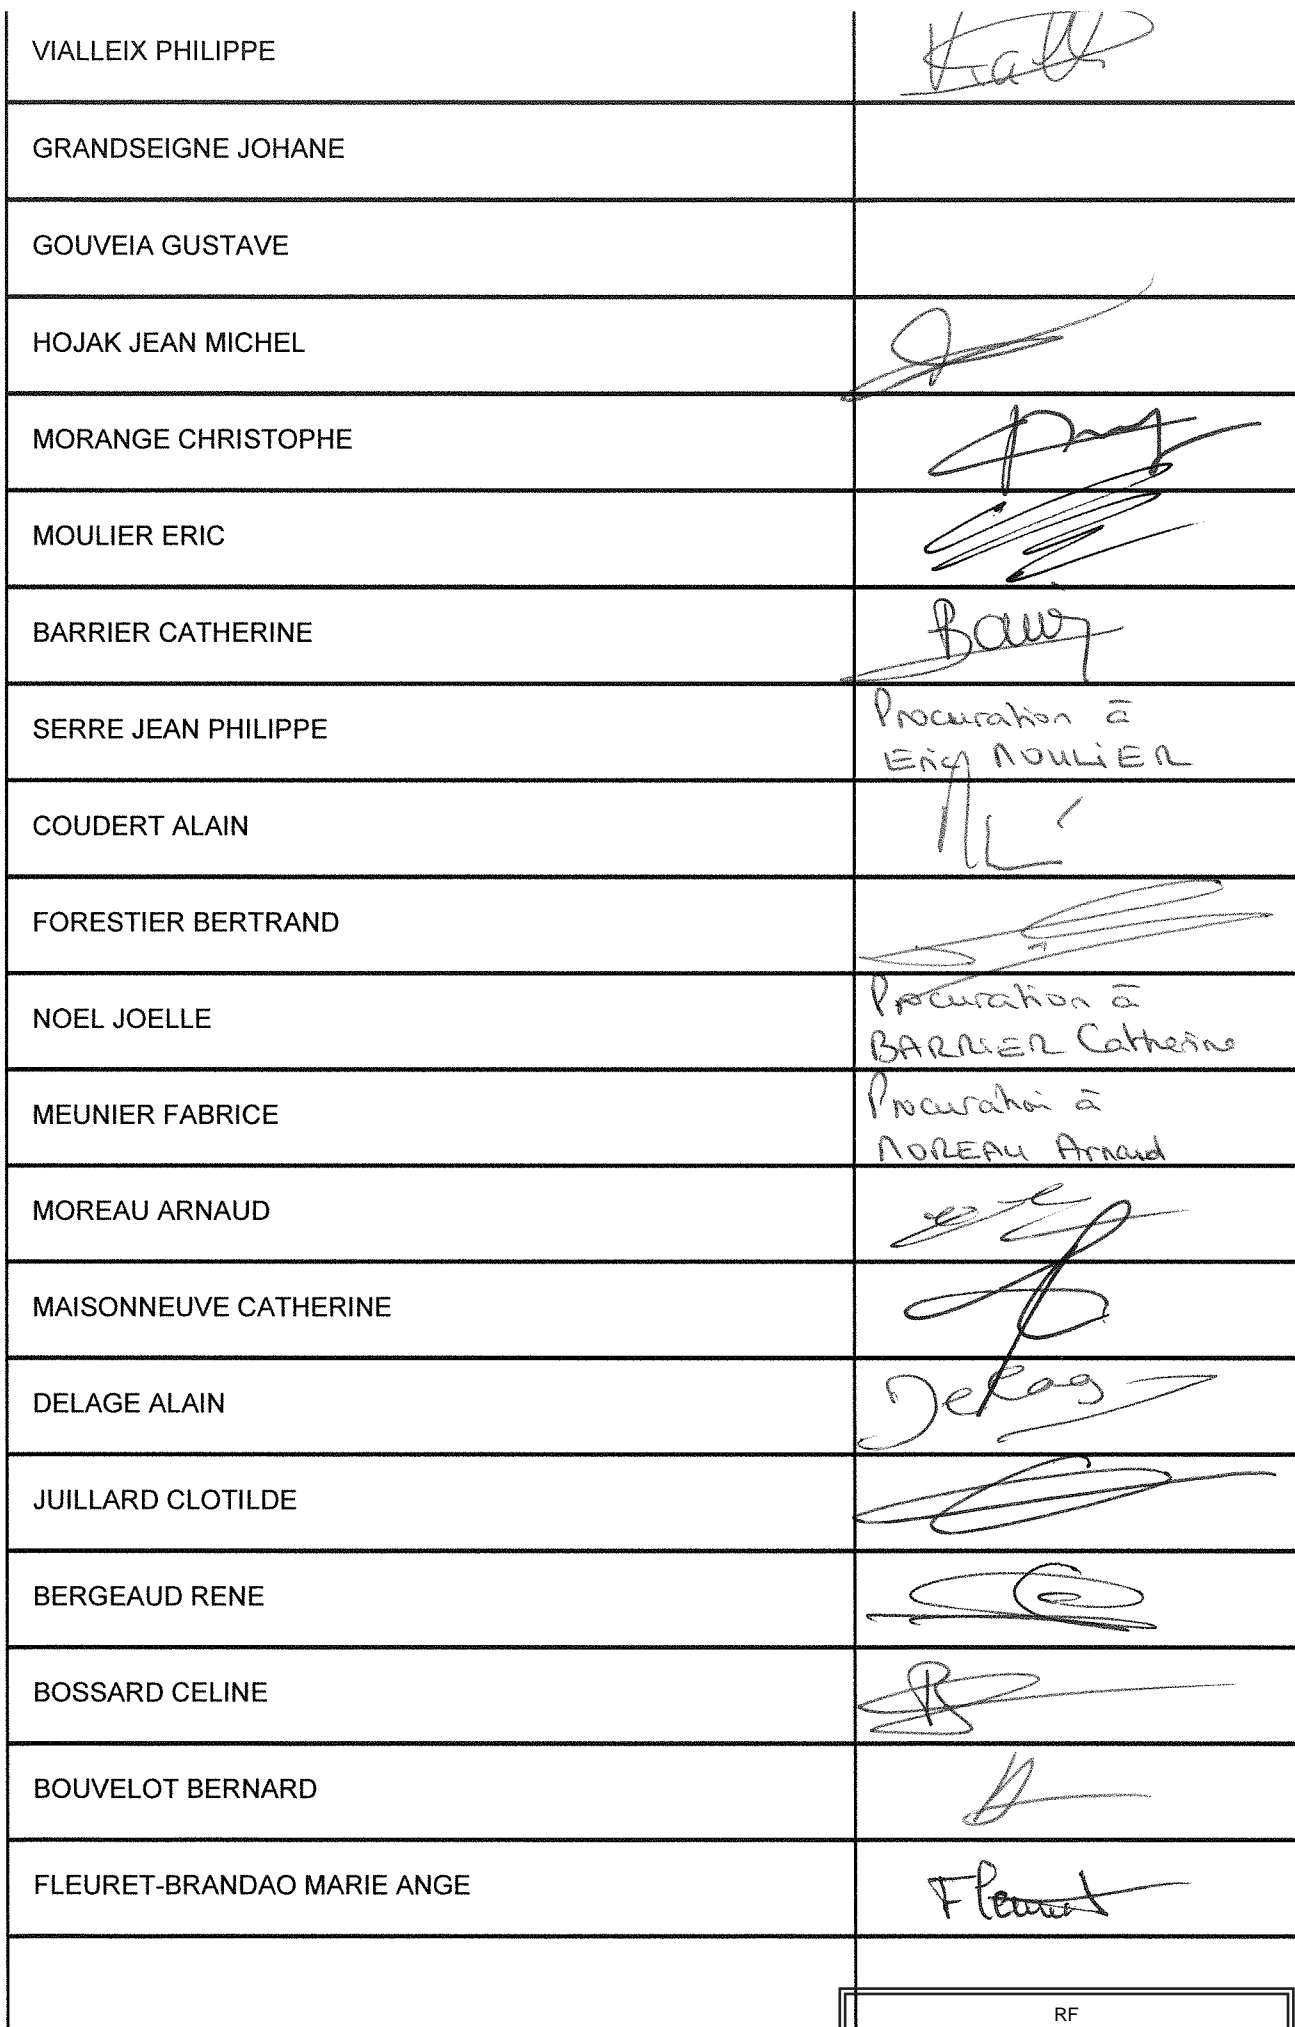 VIALLEIX PHILIPPE
GRANDSEIGNE JOHANE
GOUVEIA GUSTAVE
HOJAK JEAN MICHEL
MORANGE CHRISTOPHE
MOULIER ERIC
BARRIER CATHERINE
SERRE JEAN PHILIPPE
Procuration à
Eric MOULIER
COUDERT ALAIN
FORESTIER BERTRAND
NOEL JOELLE
Procuration à
BARRIER Catherine
MEUNIER FABRICE
Procuration à
MOREAU Arnaud
MOREAU ARNAUD
MAISONNEUVE CATHERINE
DELAGE ALAIN
Delage
JUILLARD CLOTILDE
BERGEAUD RENE
BOSSARD CELINE
BOUVELOT BERNARD
FLEURET-BRANDAO MARIE ANGE
Fleuret
RF